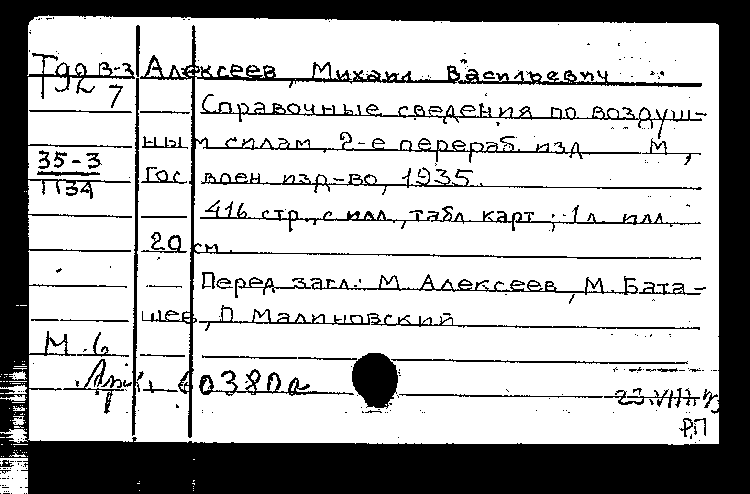 Т92 В-3 Алексеев, Михаил Васильевич
7
Справочные сведения по воздуш-
ным силам, 2-е перераб. изд М,
35-3
1134
Гос воен. изд-во, 1935.
416 стр., с илл., табл карт; 1 л. илл.
20 см.
Перед загл.: М. Алексеев, М. Бата-
шев, П. Малиновский
М. б
60380а
23.VIII.
РП